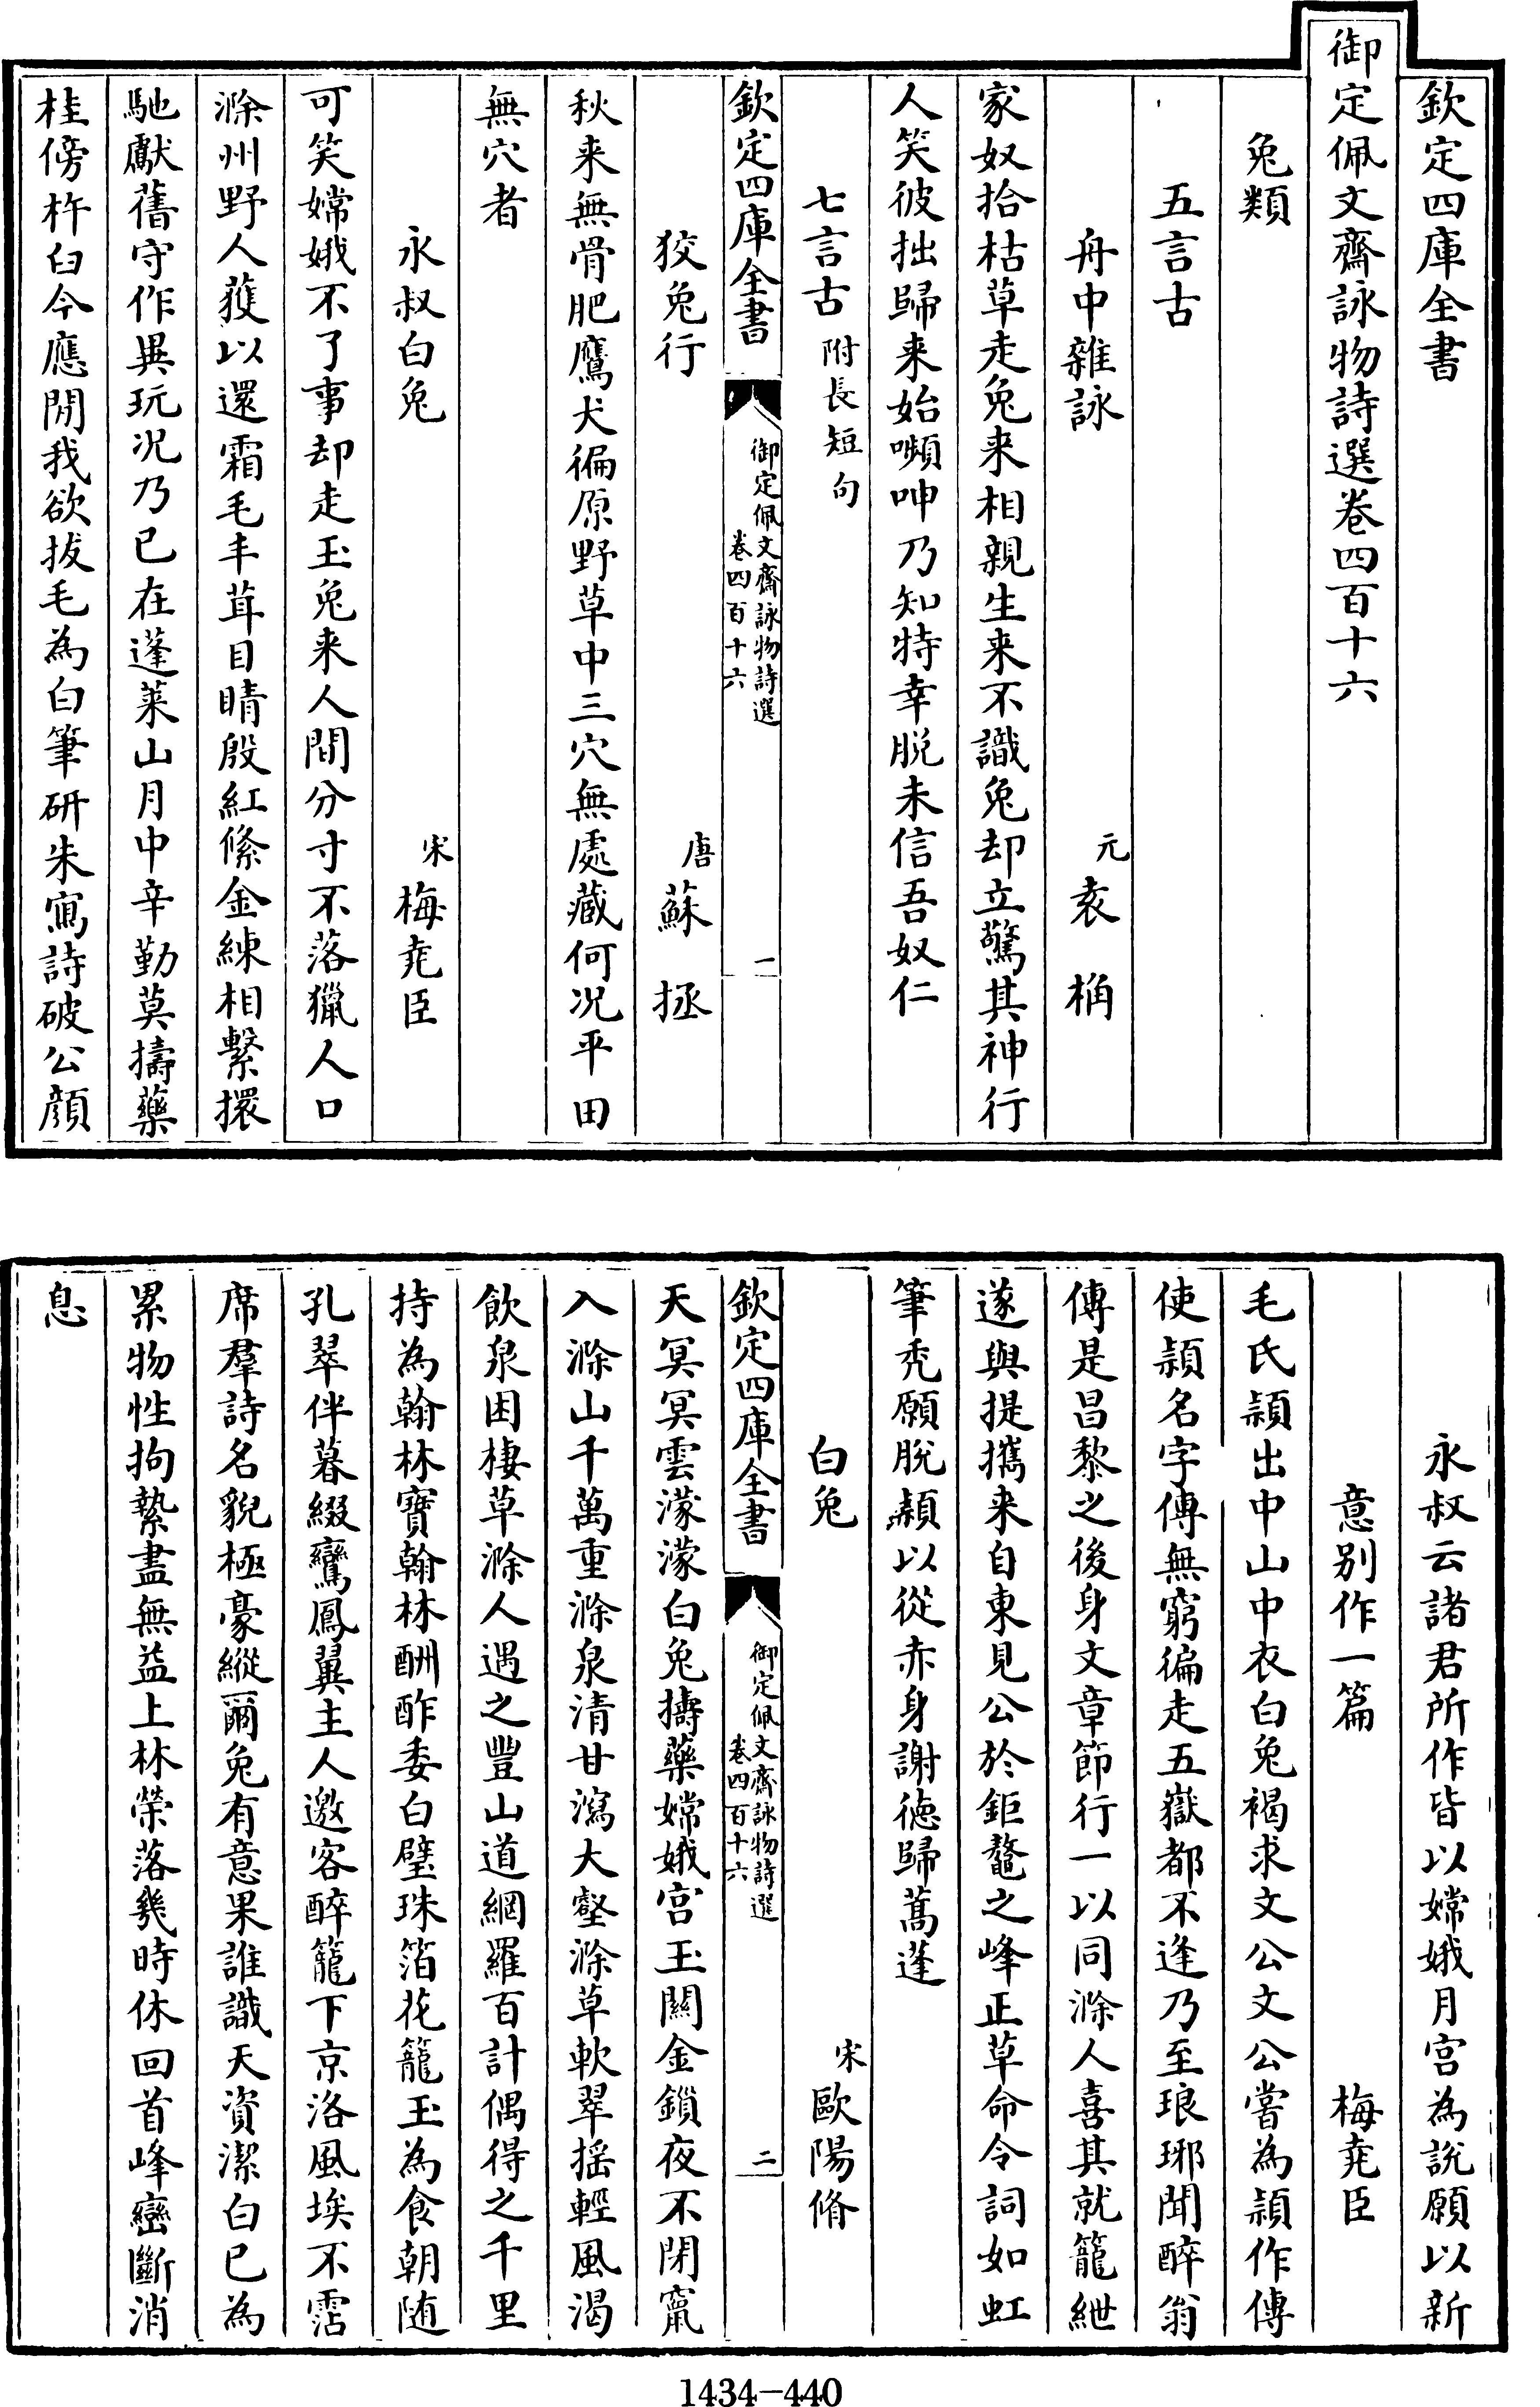 欽定四庫全書
御定佩文齋詠物詩選卷四百十六
兔類
五言古
舟中雜詠 元袁桷
家奴拾枯草走兔来相親生来不識兔却立驚其神行
人笑彼拙歸来始嚬呻乃知特幸脱未信吾奴仁
七言古附長短句
欽定四庫全書 御定佩文齋詠物詩選 卷四百十六 一
狡兔行 唐蘇拯
秋来無骨肥鷹犬徧原野草中三穴無處藏何况平田
無穴者
永叔白兔 宋梅堯臣
可笑嫦娥不了事却走玉兔来人間分寸不落獵人口
滁州野人獲以還霜毛丰茸目睛殷紅絛金練相繫擐
馳獻舊守作異玩况乃已在蓬萊山月中辛勤莫擣藥
桂傍杵臼今應閒我欲拔毛為白筆研朱寫詩破公顔
永叔云諸君所作皆以嫦娥月宫為說願以新
意别作一篇 梅堯臣
毛氏頴出中山中衣白兔褐求文公文公嘗為頴作傳
使頴名字傳無窮徧走五嶽都不逢乃至琅琊聞醉翁
傳是昌黎之後身文章節行一以同滁人喜其就籠紲
遂與提攜来自東見公於鉅鼇之峰正草命令詞如虹
筆秃願脫頴以從赤身謝徳歸蒿蓬
白兔 宋歐陽脩
欽定四庫全書 御定佩文齋詠物詩選 卷四百十六 二
天冥冥雲濛濛白兔擣藥嫦娥宫玉關金鎖夜不閉竄
入滁山千萬重滁泉清甘瀉大壑滁草軟翠摇輕風渴
飲泉困棲草滁人遇之豐山道網羅百計偶得之千里
持為翰林寶翰林酬酢委白璧珠箔花籠玉為食朝随
孔翠伴暮綴鸞鳳翼主人邀客醉籠下京洛風埃不霑
席羣詩名貌極豪縱爾兔有意果誰識天資潔白已為
累物性拘縶盡無益上林榮落幾時休回首峰巒斷消
息
1434-440